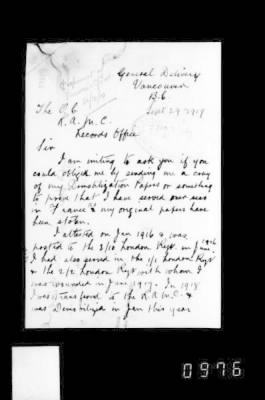 General Delivery
Vancouver
B.C.
Sept 29 1919
The O.C.
R.A.M.C.
Records Office
Sir
I am writing to ask you if you
could oblige me by sending me a copy
of my Demobilization Papers or something
to prove that I have served over seas
in France as my original papers have
been stolen.
I attested on Jan 1916 & was
posted to the 3/10 London Regt. in June 1916
I had also served in the 1/1 London Regt
& the 2/2 London Regt with whom I
was wounded in June 1917. In 1918
I was transferred to the R.A.M.C. &
was Demobilized in Jan this year
0976